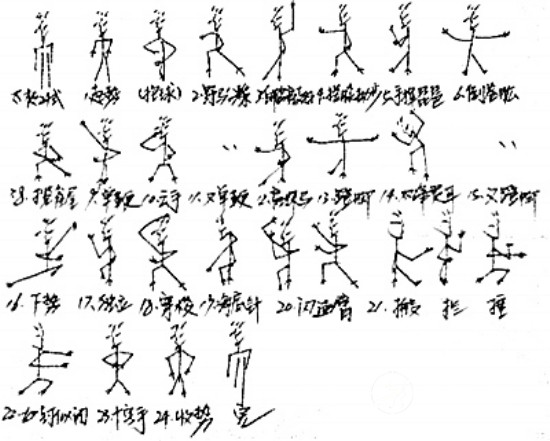 太极式 1.起势 (抱球) 2.野马分鬃 3.白鹤亮翅 4.搂膝拗步 5.手挥琵琶 6.倒卷肱
8.揽雀尾 9.单鞭 10.云手 〃 11.又单鞭 12.高探马 13.蹬脚 14.双峰贯耳 15.又蹬脚 〃
16.下势 17.独立 18.穿梭 19.海底针 20.闪通臂 21.搬 拦 捶
22.如封似闭 23.十字手 24.收势 完